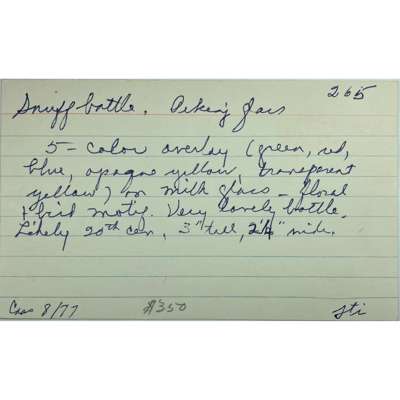 265
Snuff bottle. Peking glass
5-color overlay (green, red,
blue, opaque yellow, transparent
yellow) on milk glass - floral
+ bird motif. Very lovely bottle.
Likely 20th cen, 3" tall, 2¼" wide.
8/77 $350 sti